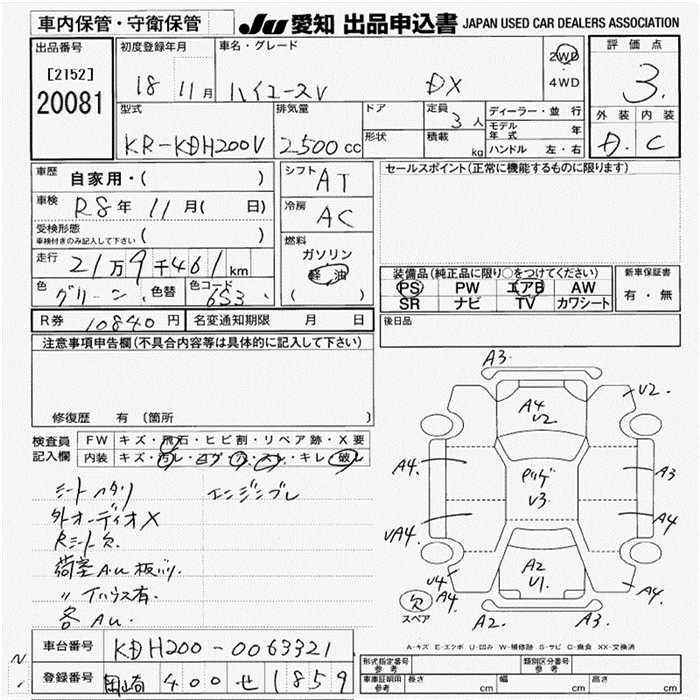 車内保管・守衛保管
JU 愛知 出品申込書 JAPAN USED CAR DEALERS ASSOCIATION
出品番号
[2152]
20081
初度登録年月
18 11月
車名・グレード
ハイエースV DX
2WD
4WD
評価点
3.
外装 内装
D. C
型式
KR-KDH200V
排気量
2.500 cc
ドア
形状
定員
3人
積載
kg
ディーラー・並行
モデル年式 年
ハンドル 左・右
車歴
自家用・( )
車検
R8年 11月( 日)
受検形態
車検付きのみ記入して下さい ( )
走行
21万9千461km
色
グリーン
色替
色コード
6S3
シフト
AT
冷房
AC
燃料
ガソリン
軽油
( )
セールスポイント(正常に機能するものに限ります)
装備品(純正品に限り○をつけてください)
PS PW エアB AW
SR ナビ TV カワシート
新車保証書
有・無
R券 10840円 名変通知期限 月 日
後日品
注意事項申告欄(不具合内容等は具体的に記入して下さい)
修復歴 有 (箇所 )
検査員
記入欄
FW キズ・飛石・ヒビ割・リペア跡・X要
内装 キズ・汚レ・コゲ・ハ・スレ・キレ・破レ
シートヘタリ エンジンブレ
外オーディオX
Rシート欠
荷室Au板バリ
〃 イハウス有.
各Au.
A3.
V2.
A4
V2
A4.
A3
Pリゲ
V3.
VA4.
A4
V4
A4.
A2
V1.
A4.
欠
スペア
A2. A3.
A-キズ E-エクボ U-凹み W-補修跡 S-サビ C-腐食 XX-交換済
車台番号 KDH200-0063321
登録番号 岡崎 400 せ 1859
N/.
形式指定番号
参考
類別区分番号
参考
車庫証明用
参考
長さ cm
幅 cm
高さ cm